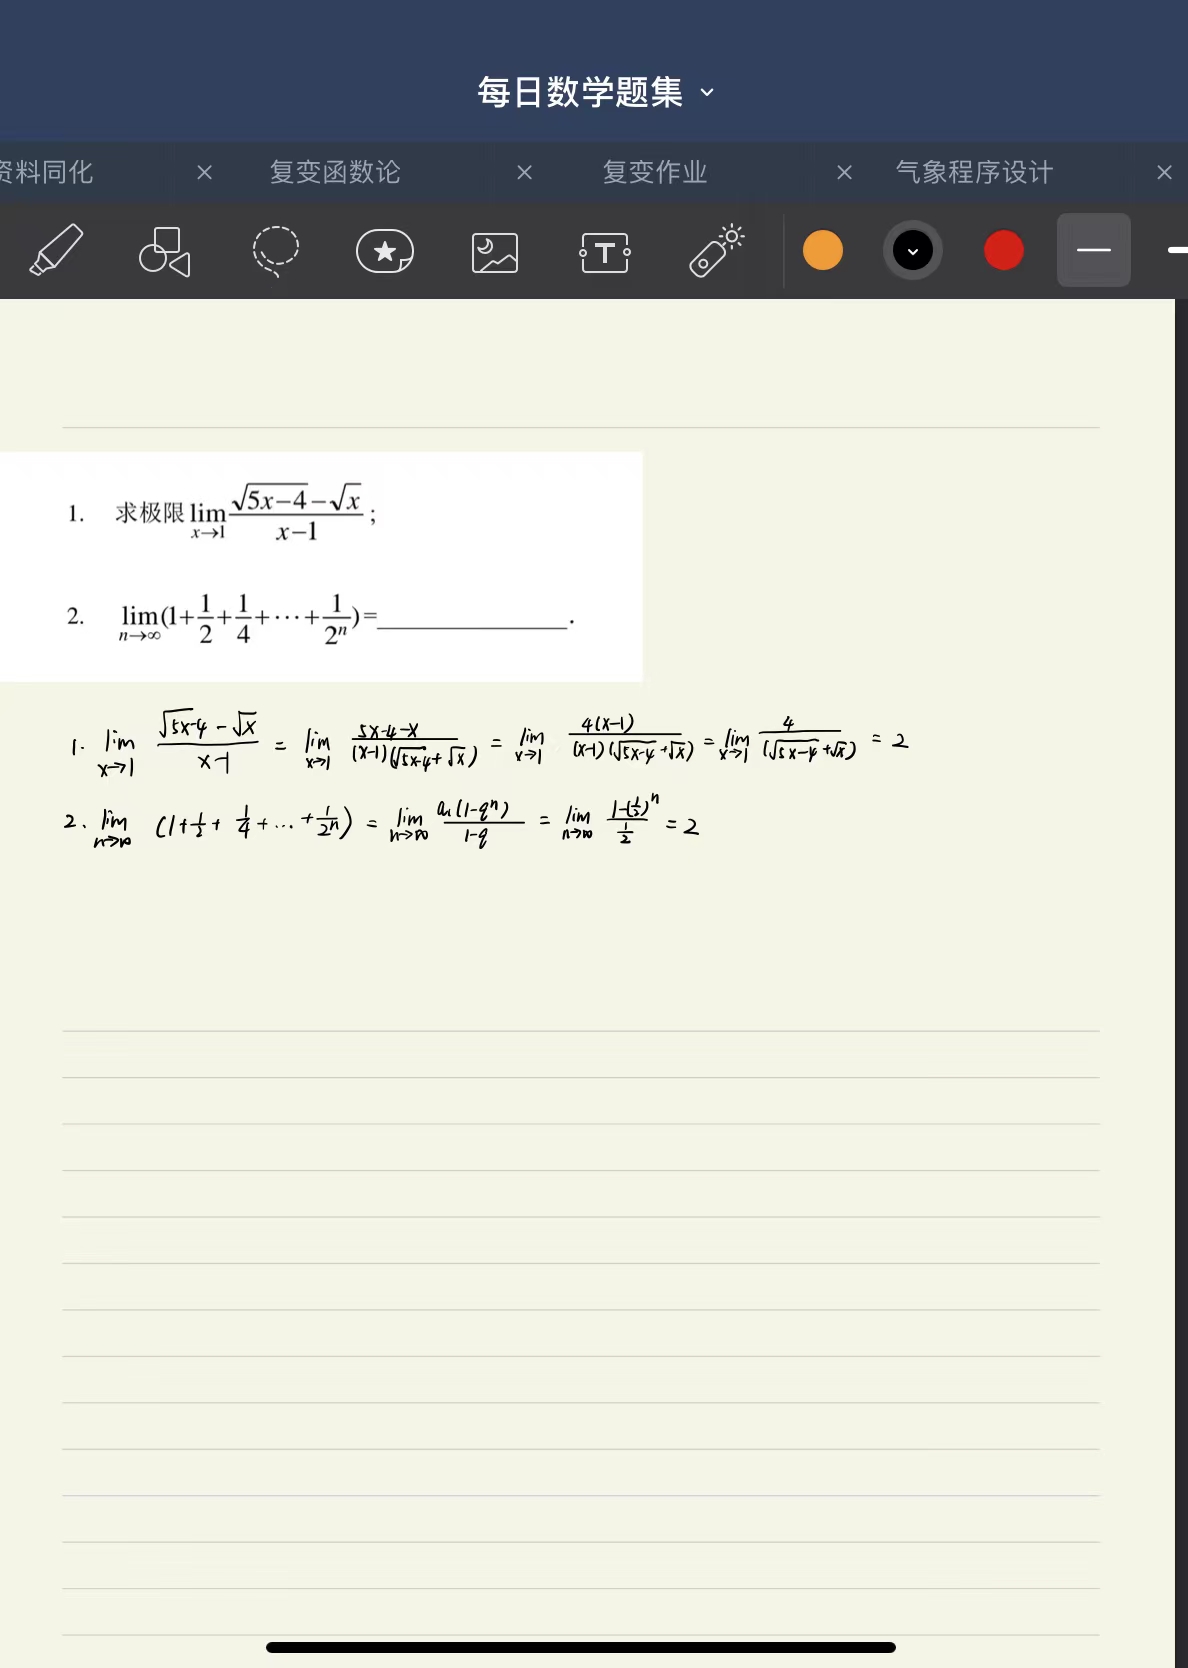 每日数学题集
资料同化 × 复变函数论 × 复变作业 × 气象程序设计 ×
T
1. 求极限 lim_{x→1} (√(5x−4)−√x)/(x−1) ;
2. lim_{n→∞}(1+1/2+1/4+⋯+1/2ⁿ)=______________.
1. lim_{x→1} (√(5x-4) - √x)/(x-1) = lim_{x→1} (5x-4-x)/((x-1)(√(5x-4)+√x)) = lim_{x→1} 4(x-1)/((x-1)(√(5x-4)+√x)) = lim_{x→1} 4/(√(5x-4)+√x) = 2
2. lim_{n→∞} (1+1/2+1/4+...+1/2ⁿ) = lim_{n→∞} a₁(1-qⁿ)/(1-q) = lim_{n→∞} (1-(1/2)ⁿ)/(1/2) = 2